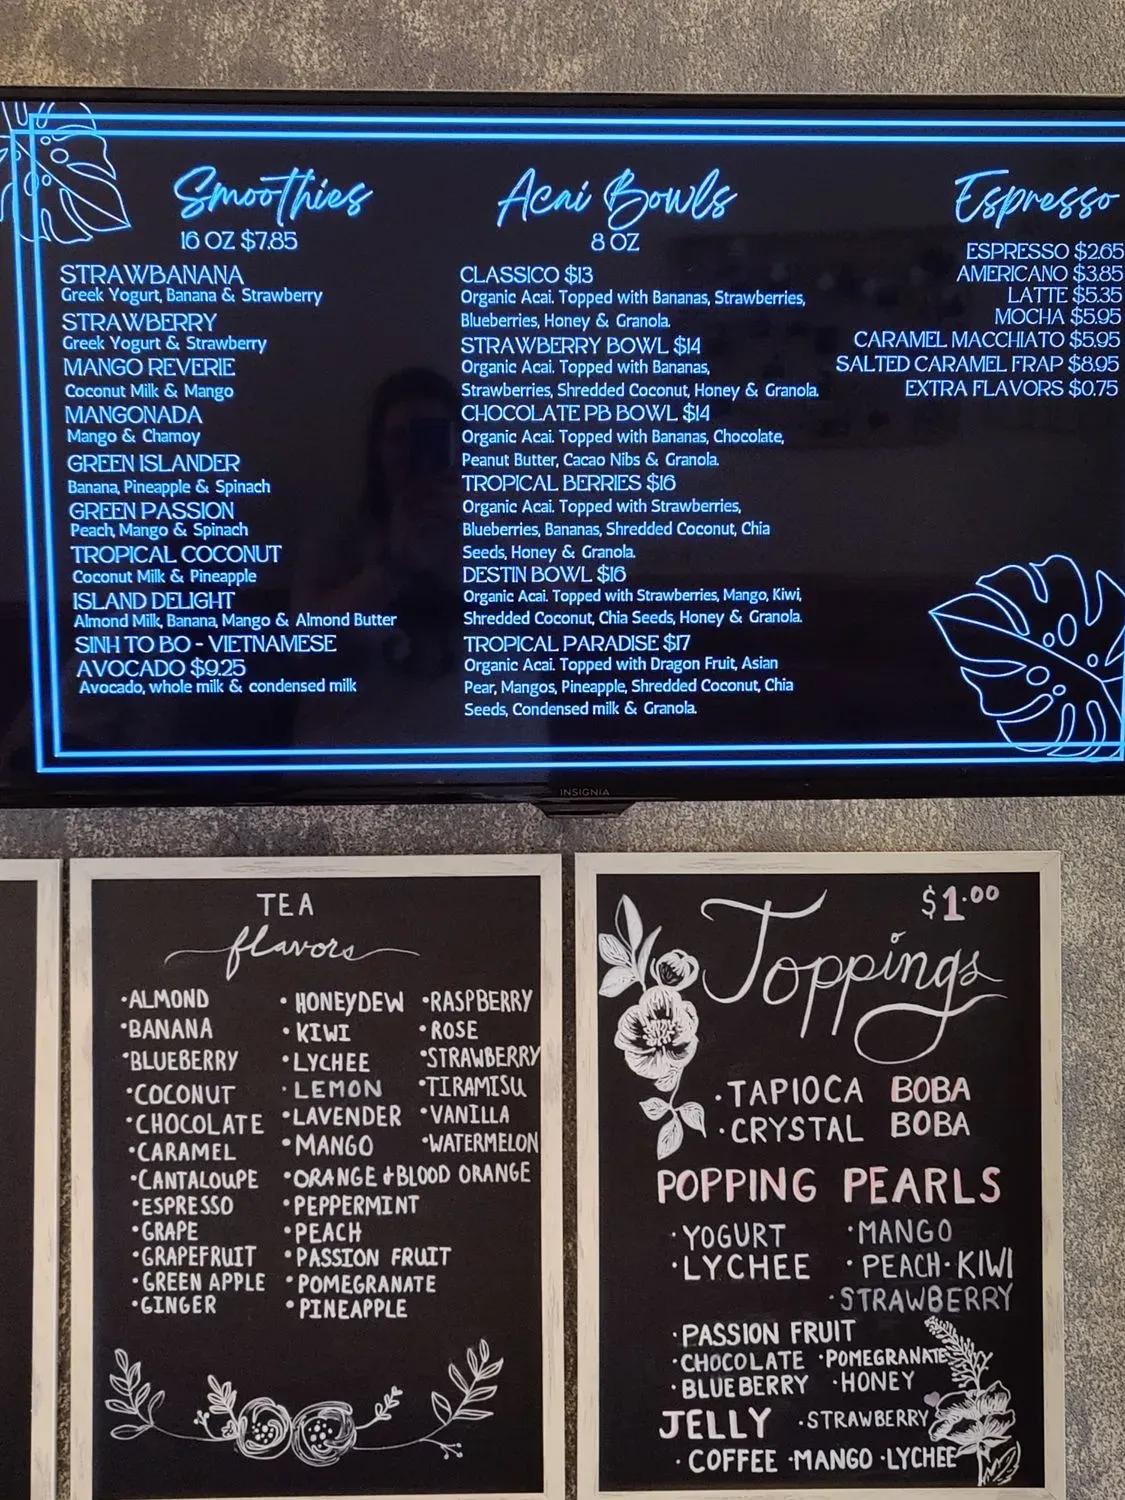 Smoothies
16 OZ $7.85
STRAWBANANA
Greek Yogurt, Banana & Strawberry
STRAWBERRY
Greek Yogurt & Strawberry
MANGO REVERIE
Coconut Milk & Mango
MANGONADA
Mango & Chamoy
GREEN ISLANDER
Banana, Pineapple & Spinach
GREEN PASSION
Peach, Mango & Spinach
TROPICAL COCONUT
Coconut Milk & Pineapple
ISLAND DELIGHT
Almond Milk, Banana, Mango & Almond Butter
SINH TO BO - VIETNAMESE
AVOCADO $9.25
Avocado, whole milk & condensed milk
Acai Bowls
8 OZ
CLASSICO $13
Organic Acai. Topped with Bananas, Strawberries,
Blueberries, Honey & Granola.
STRAWBERRY BOWL $14
Organic Acai. Topped with Bananas,
Strawberries, Shredded Coconut, Honey & Granola.
CHOCOLATE PB BOWL $14
Organic Acai. Topped with Bananas, Chocolate,
Peanut Butter, Cacao Nibs & Granola.
TROPICAL BERRIES $16
Organic Acai. Topped with Strawberries,
Blueberries, Bananas, Shredded Coconut, Chia
Seeds, Honey & Granola.
DESTIN BOWL $16
Organic Acai. Topped with Strawberries, Mango, Kiwi,
Shredded Coconut, Chia Seeds, Honey & Granola.
TROPICAL PARADISE $17
Organic Acai. Topped with Dragon Fruit, Asian
Pear, Mangos, Pineapple, Shredded Coconut, Chia
Seeds, Condensed milk & Granola.
Espresso
ESPRESSO $2.65
AMERICANO $3.85
LATTE $5.35
MOCHA $5.95
CARAMEL MACCHIATO $5.95
SALTED CARAMEL FRAP $8.95
EXTRA FLAVORS $0.75
INSIGNIA
TEA
flavors
•ALMOND
•BANANA
•BLUEBERRY
•COCONUT
•CHOCOLATE
•CARAMEL
•CANTALOUPE
•ESPRESSO
•GRAPE
•GRAPEFRUIT
•GREEN APPLE
•GINGER
•HONEYDEW
•KIWI
•LYCHEE
•LEMON
•LAVENDER
•MANGO
•ORANGE & BLOOD ORANGE
•PEPPERMINT
•PEACH
•PASSION FRUIT
•POMEGRANATE
•PINEAPPLE
•RASPBERRY
•ROSE
•STRAWBERRY
•TIRAMISU
•VANILLA
•WATERMELON
$1.00
Toppings
•TAPIOCA BOBA
•CRYSTAL BOBA
POPPING PEARLS
•YOGURT •MANGO
•LYCHEE •PEACH •KIWI
•STRAWBERRY
•PASSION FRUIT
•CHOCOLATE •POMEGRANATE
•BLUEBERRY •HONEY
JELLY •STRAWBERRY
•COFFEE •MANGO •LYCHEE